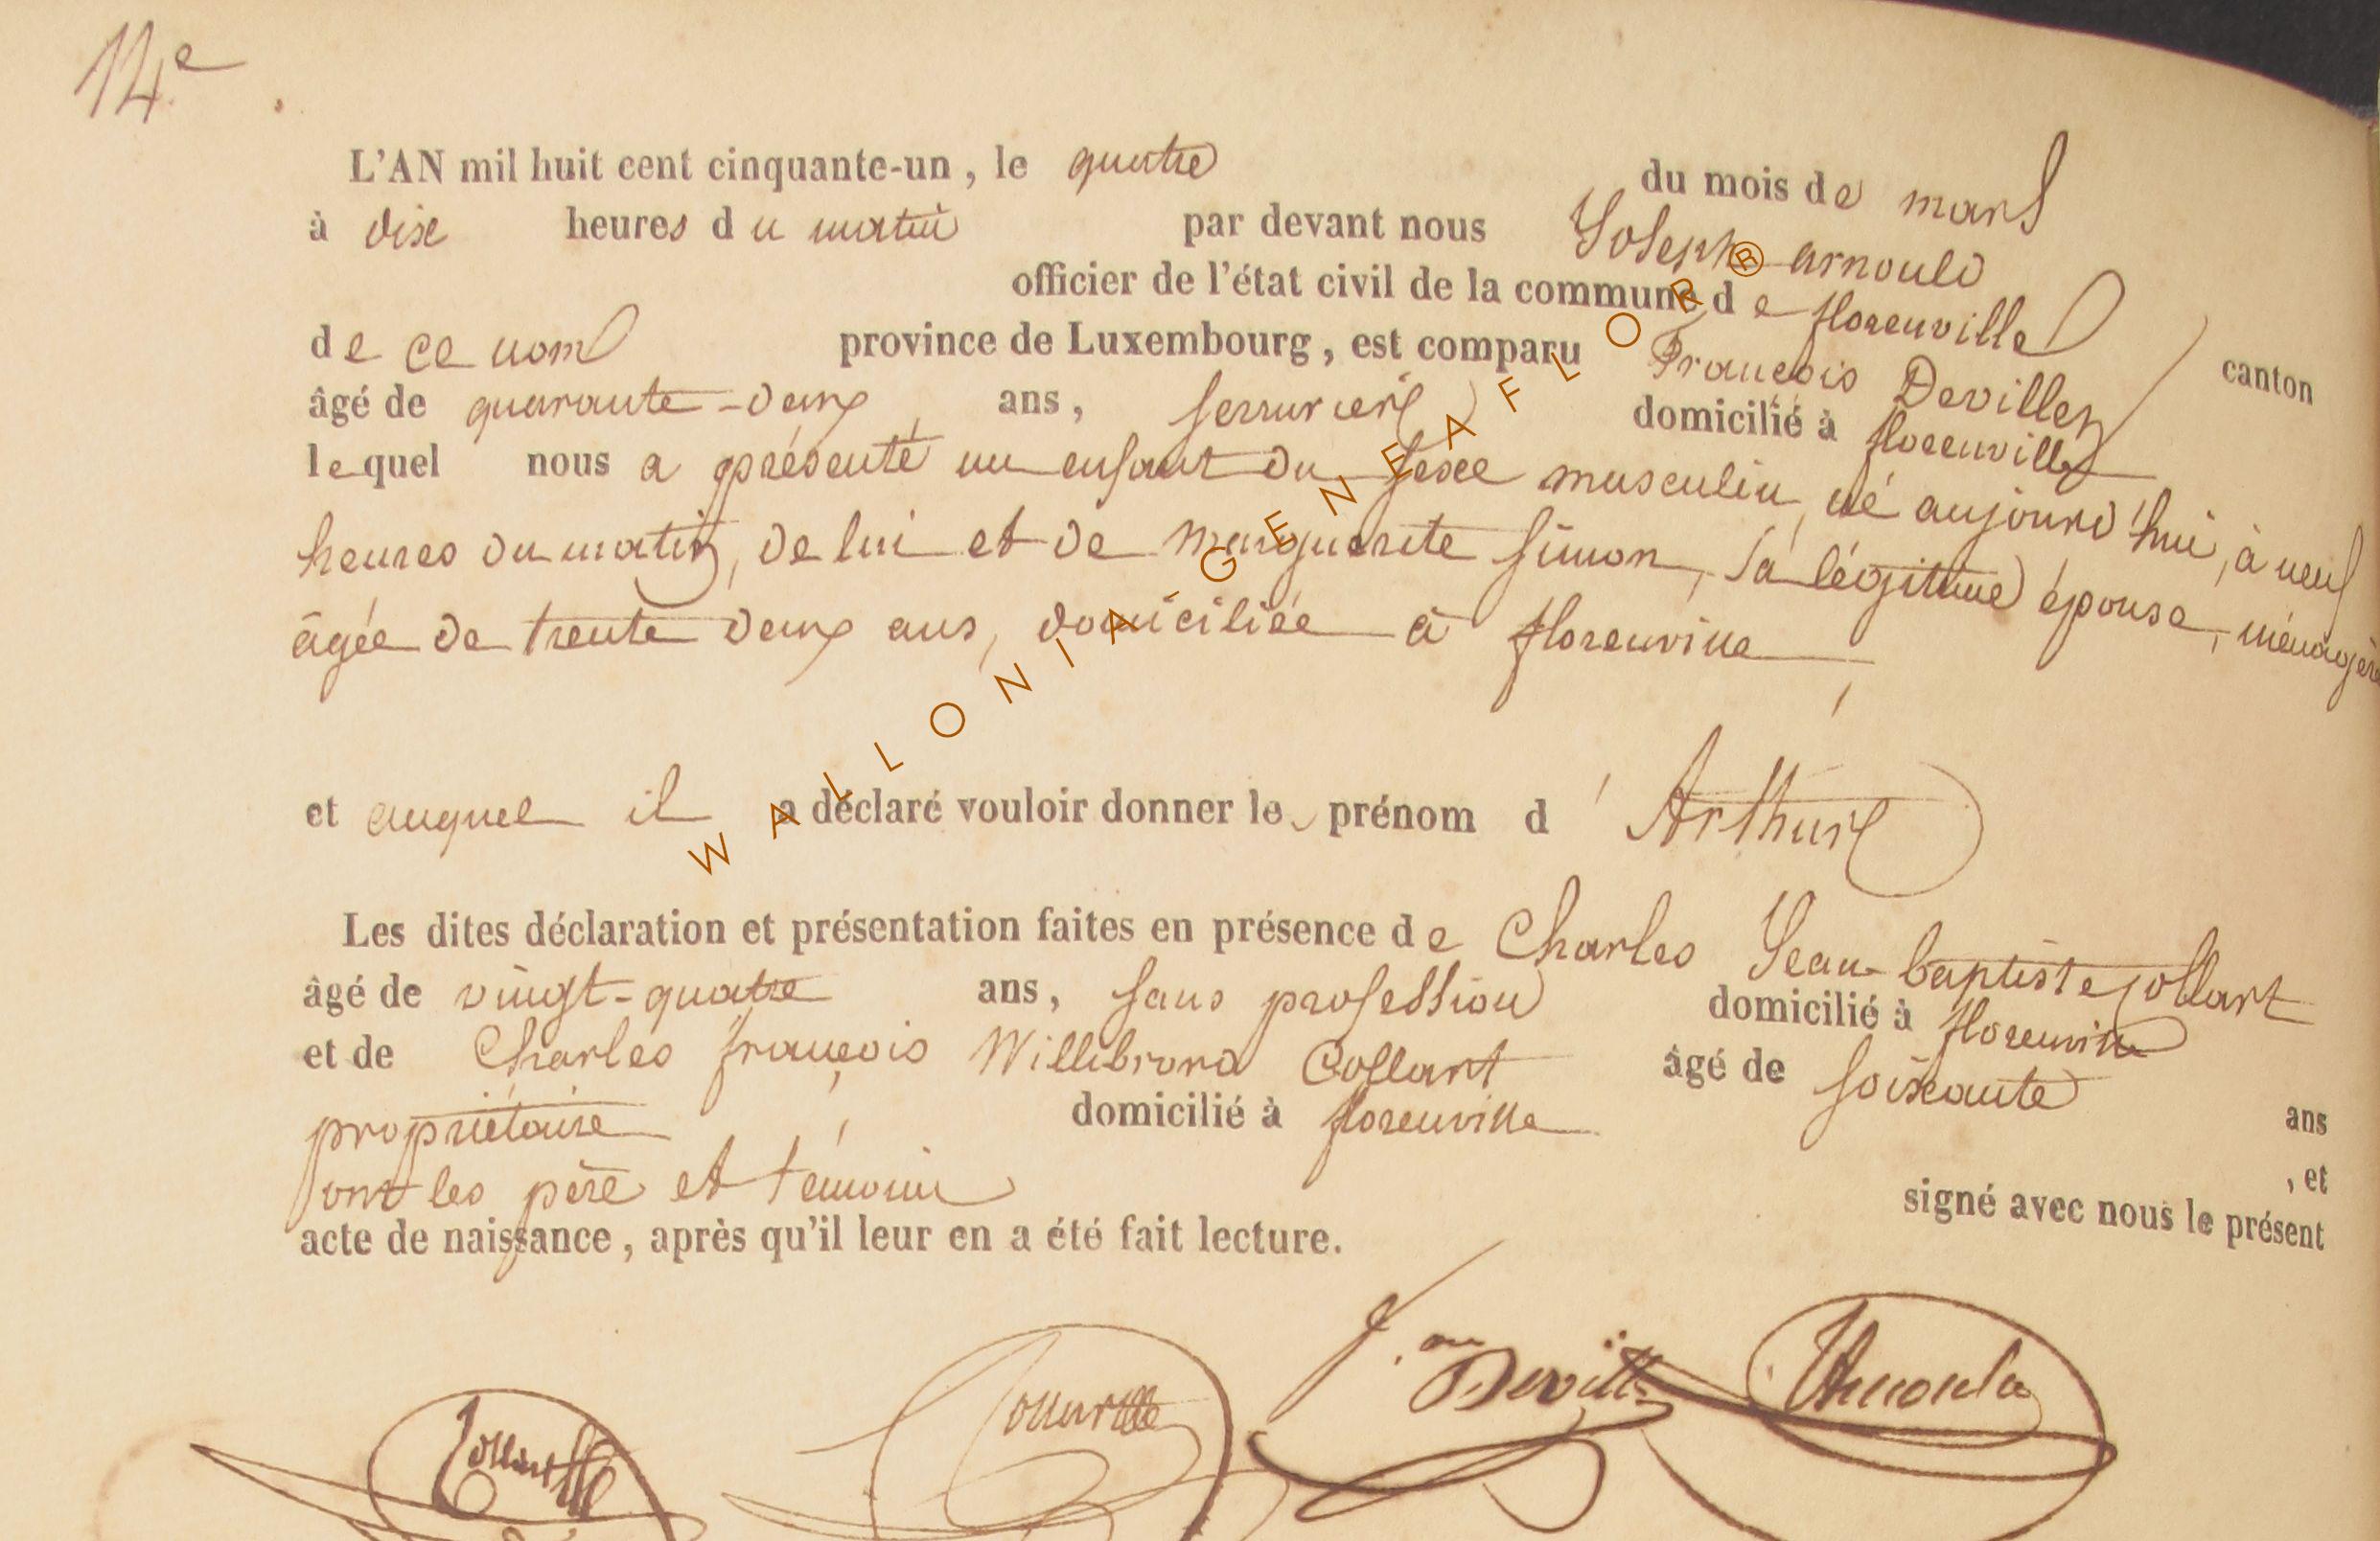 14e
L'AN mil huit cent cinquante-un, le quatre du mois de mars
à dix heures du matin par devant nous Joseph arnould
officier de l'état civil de la commune de florenville canton
de ce nom province de Luxembourg, est comparu François Devillez
âgé de quarante-deux ans, serrurier domicilié à florenville
lequel nous a présenté un enfant du sexe musculin, né aujourd'hui, à neuf
heures du matin, de lui et de marguerite simon, sa légitime épouse, ménagère
âgée de trente deux ans, domiciliée à florenville
et auquel il a déclaré vouloir donner le prénom d'Arthur
Les dites déclaration et présentation faites en présence de Charles Jean-baptiste collart
âgé de vingt-quatre ans, sans profession domicilié à florenville
et de Charles françois Willibrord Collart âgé de soixante ans
propriétaire domicilié à florenville, et
ont les père et témoins signé avec nous le présent
acte de naissance, après qu'il leur en a été fait lecture.
Collart Collart Devillez JArnould
WALLONIA - GENEAFLOR®